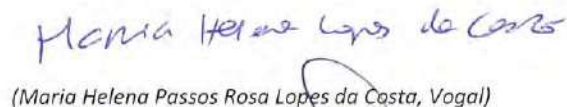 Maria Helena Lopes da Costa
(Maria Helena Passos Rosa Lopes da Costa, Vogal)